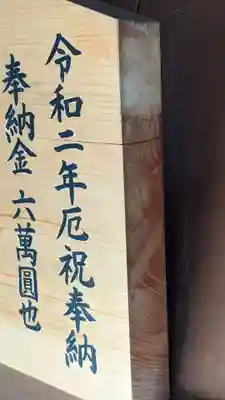 令和二年厄祝奉納
奉納金 六萬圓也